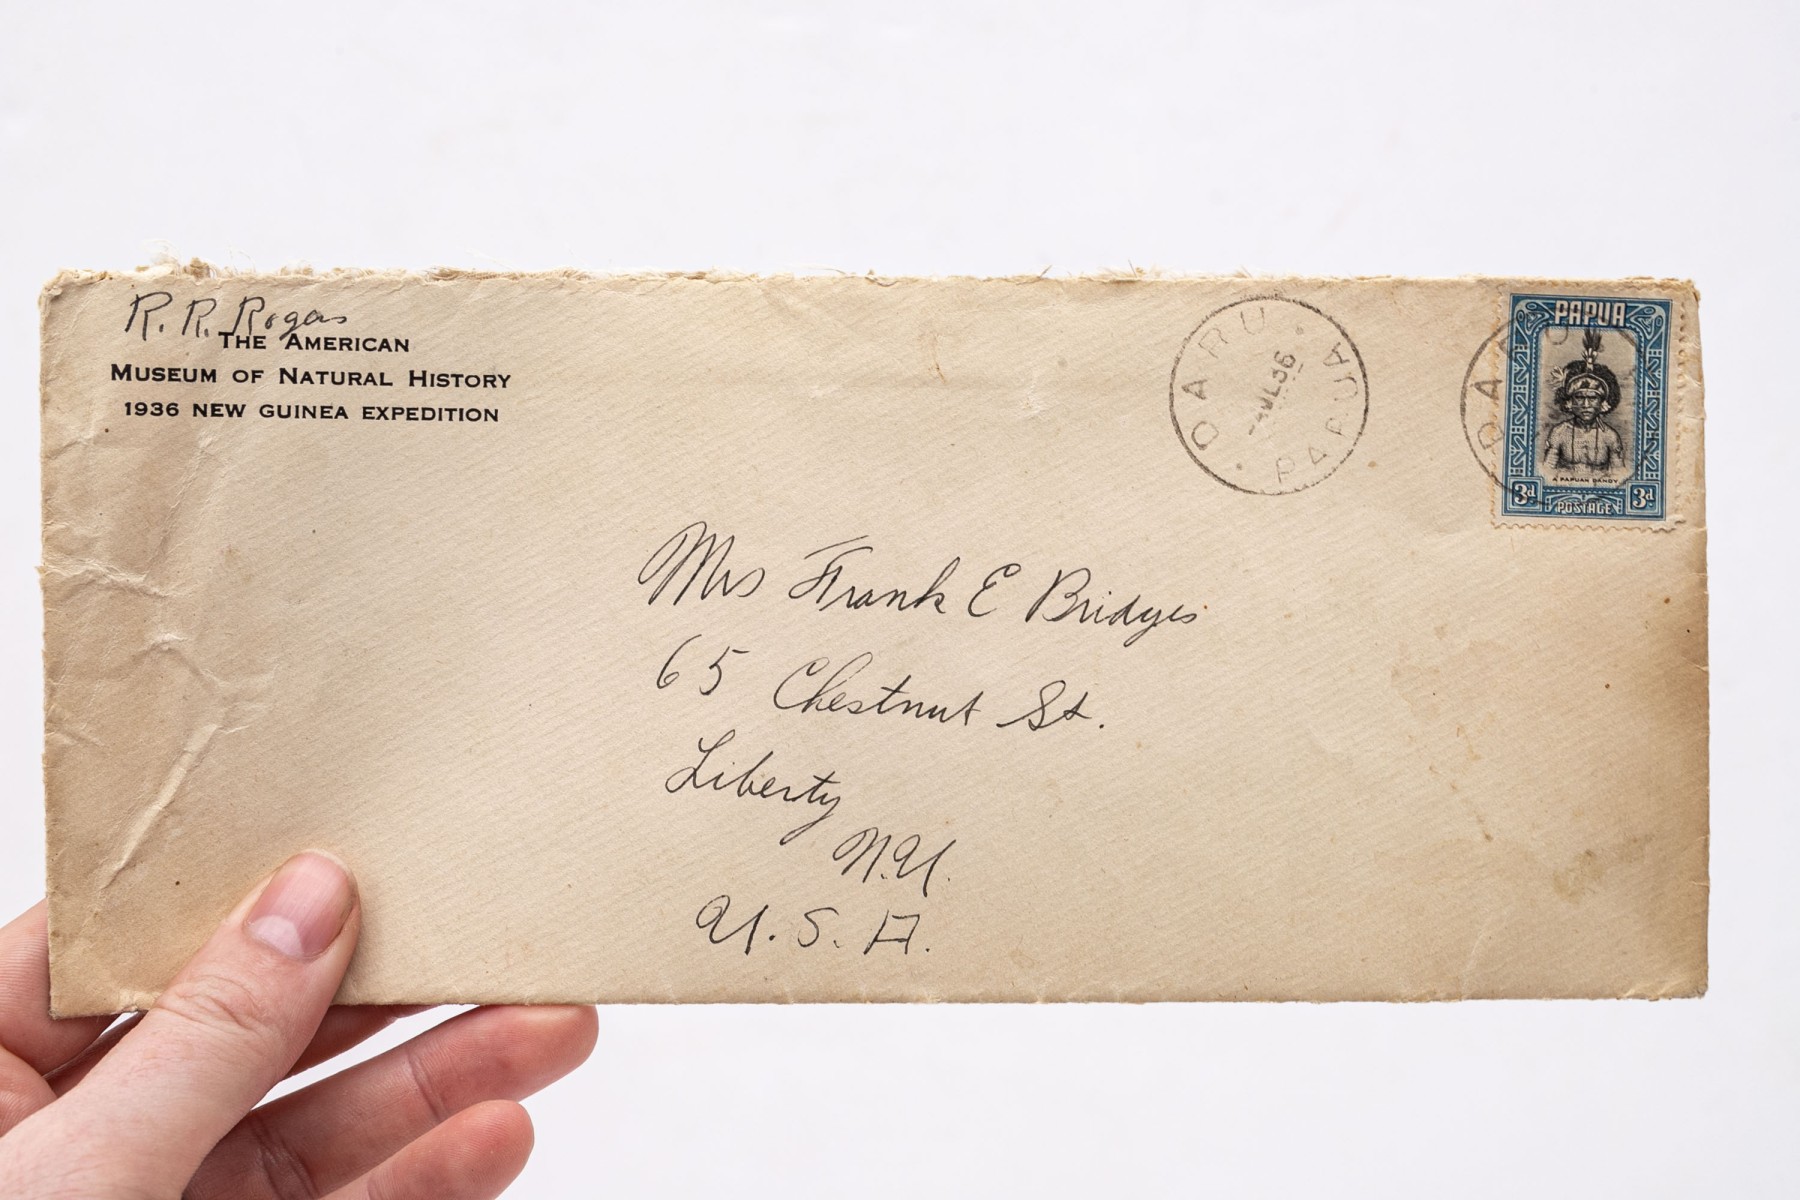 R. R. Rogers
THE AMERICAN
MUSEUM OF NATURAL HISTORY
1936 NEW GUINEA EXPEDITION
DARU
JL 36
PAPUA
DARU
PAPUA
A PAPUAN DANDY
3d POSTAGE 3d
Mrs Frank E Bridges
65 Chestnut St.
Liberty
N.Y.
U. S. A.